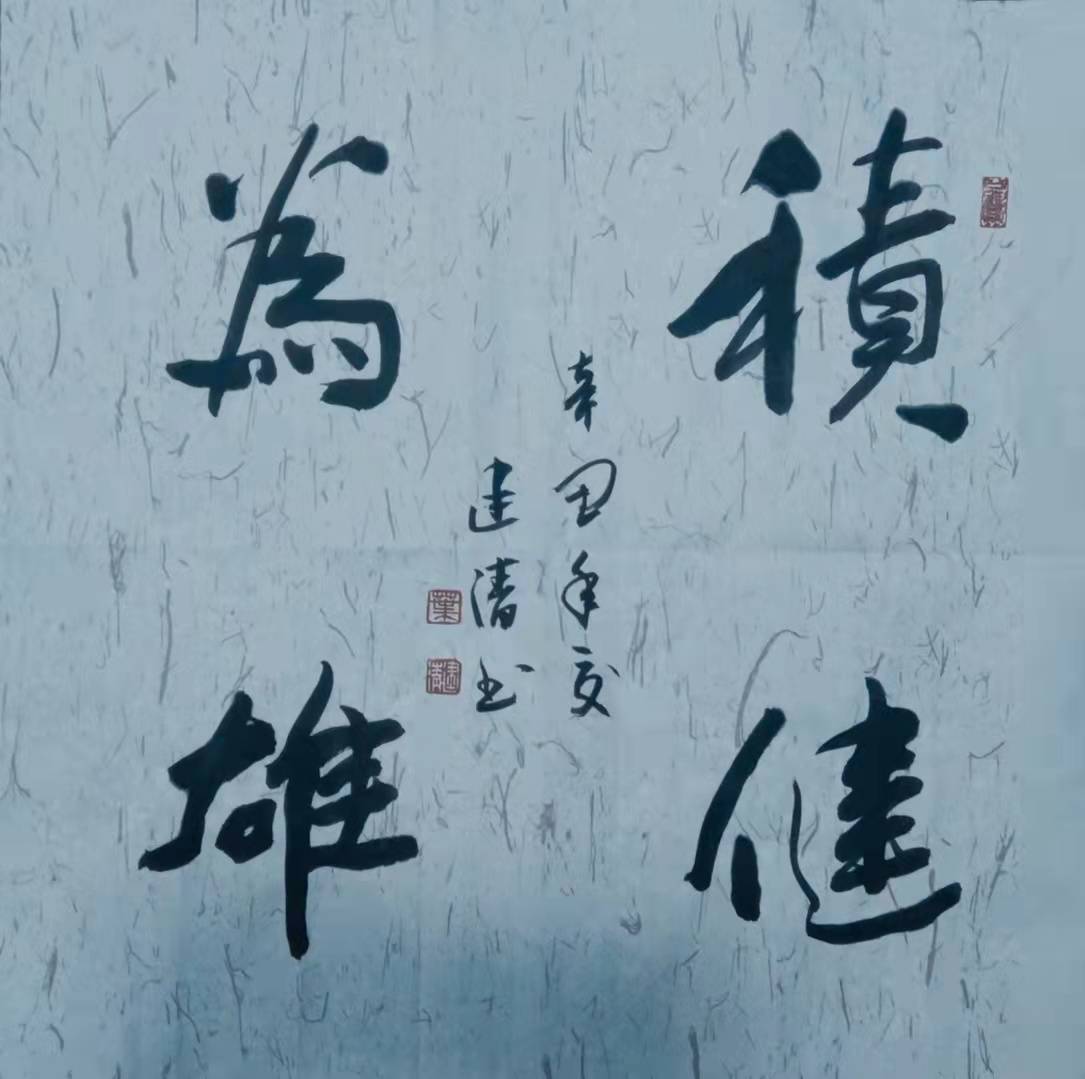 積健
為雄
辛丑年夏
建清书
葉